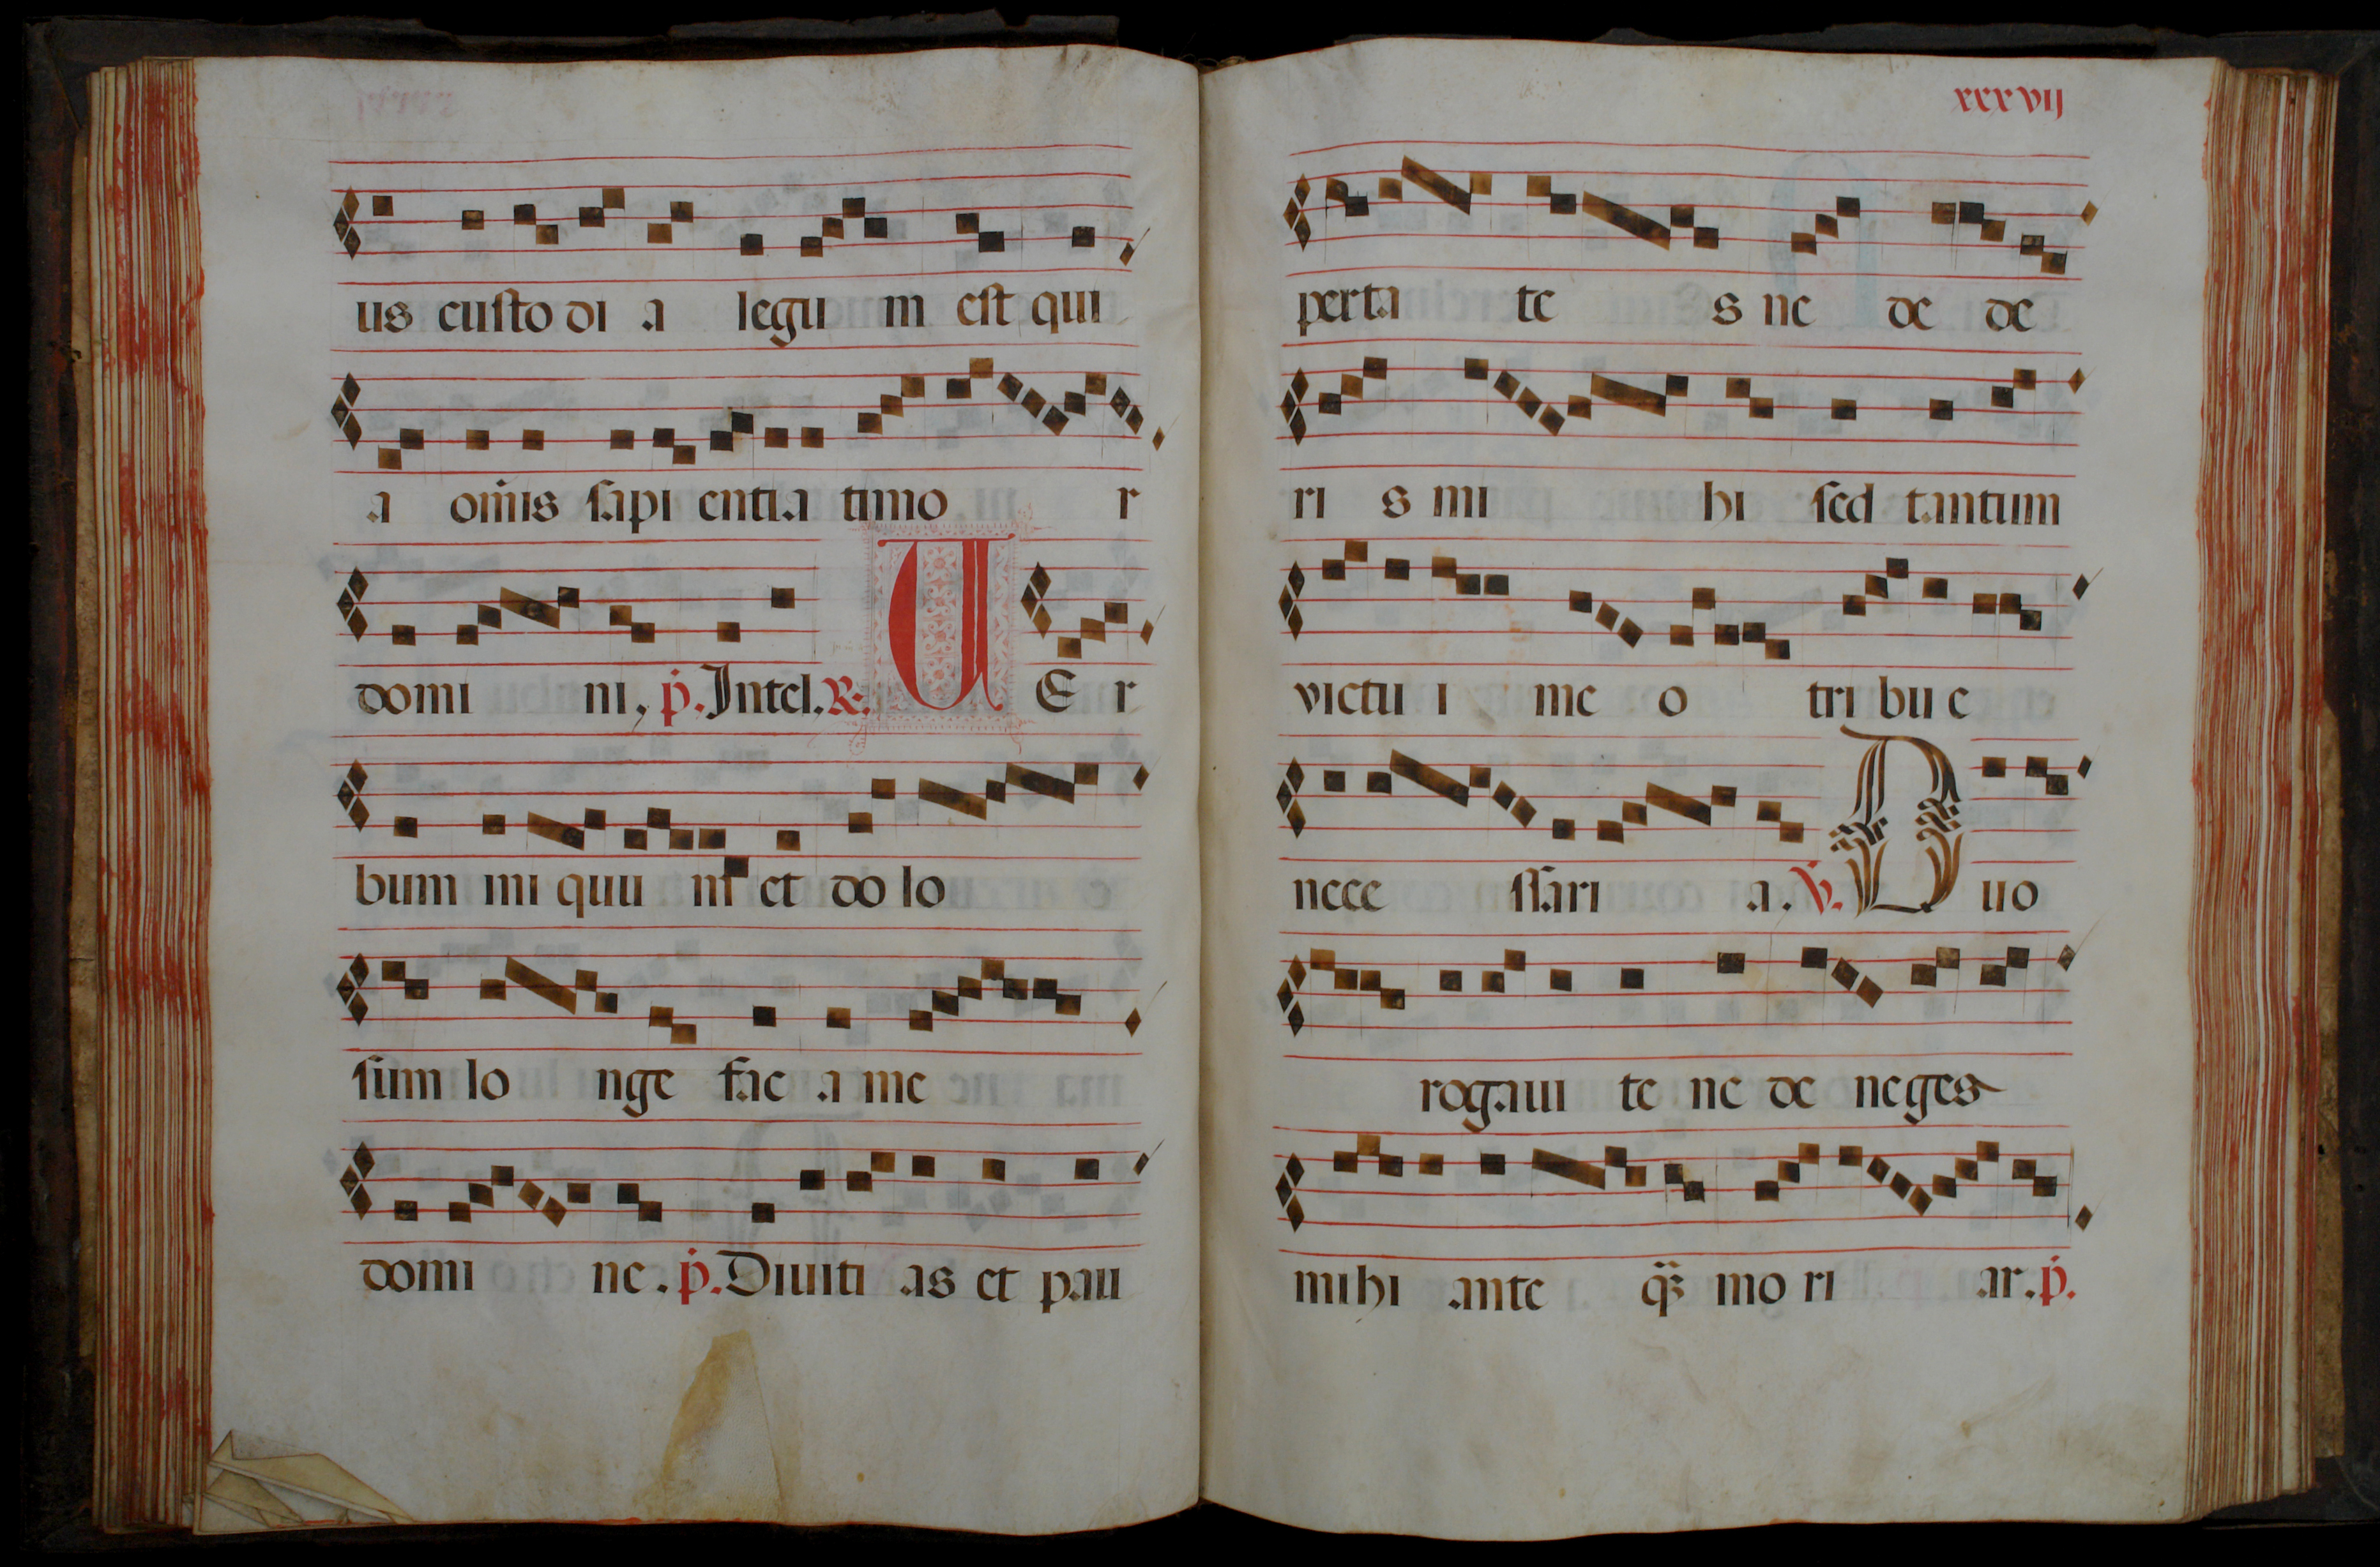 us custo di a legu m est qui
a om̄is sapi entia timo r
domi ni, p̄. Intel. R. U E r
bum ini quu m et do lo
sum lo nge fac a me
domi ne. p̄. Diuiti as et pau
xxxvij
perta te s ne de de
ri s mi hi sed tantum
victu i me o tribu e
nece ssari a. V. D uo
rogaui te ne de neges
mihi ante q̄ȝ mo ri ar. p̄.